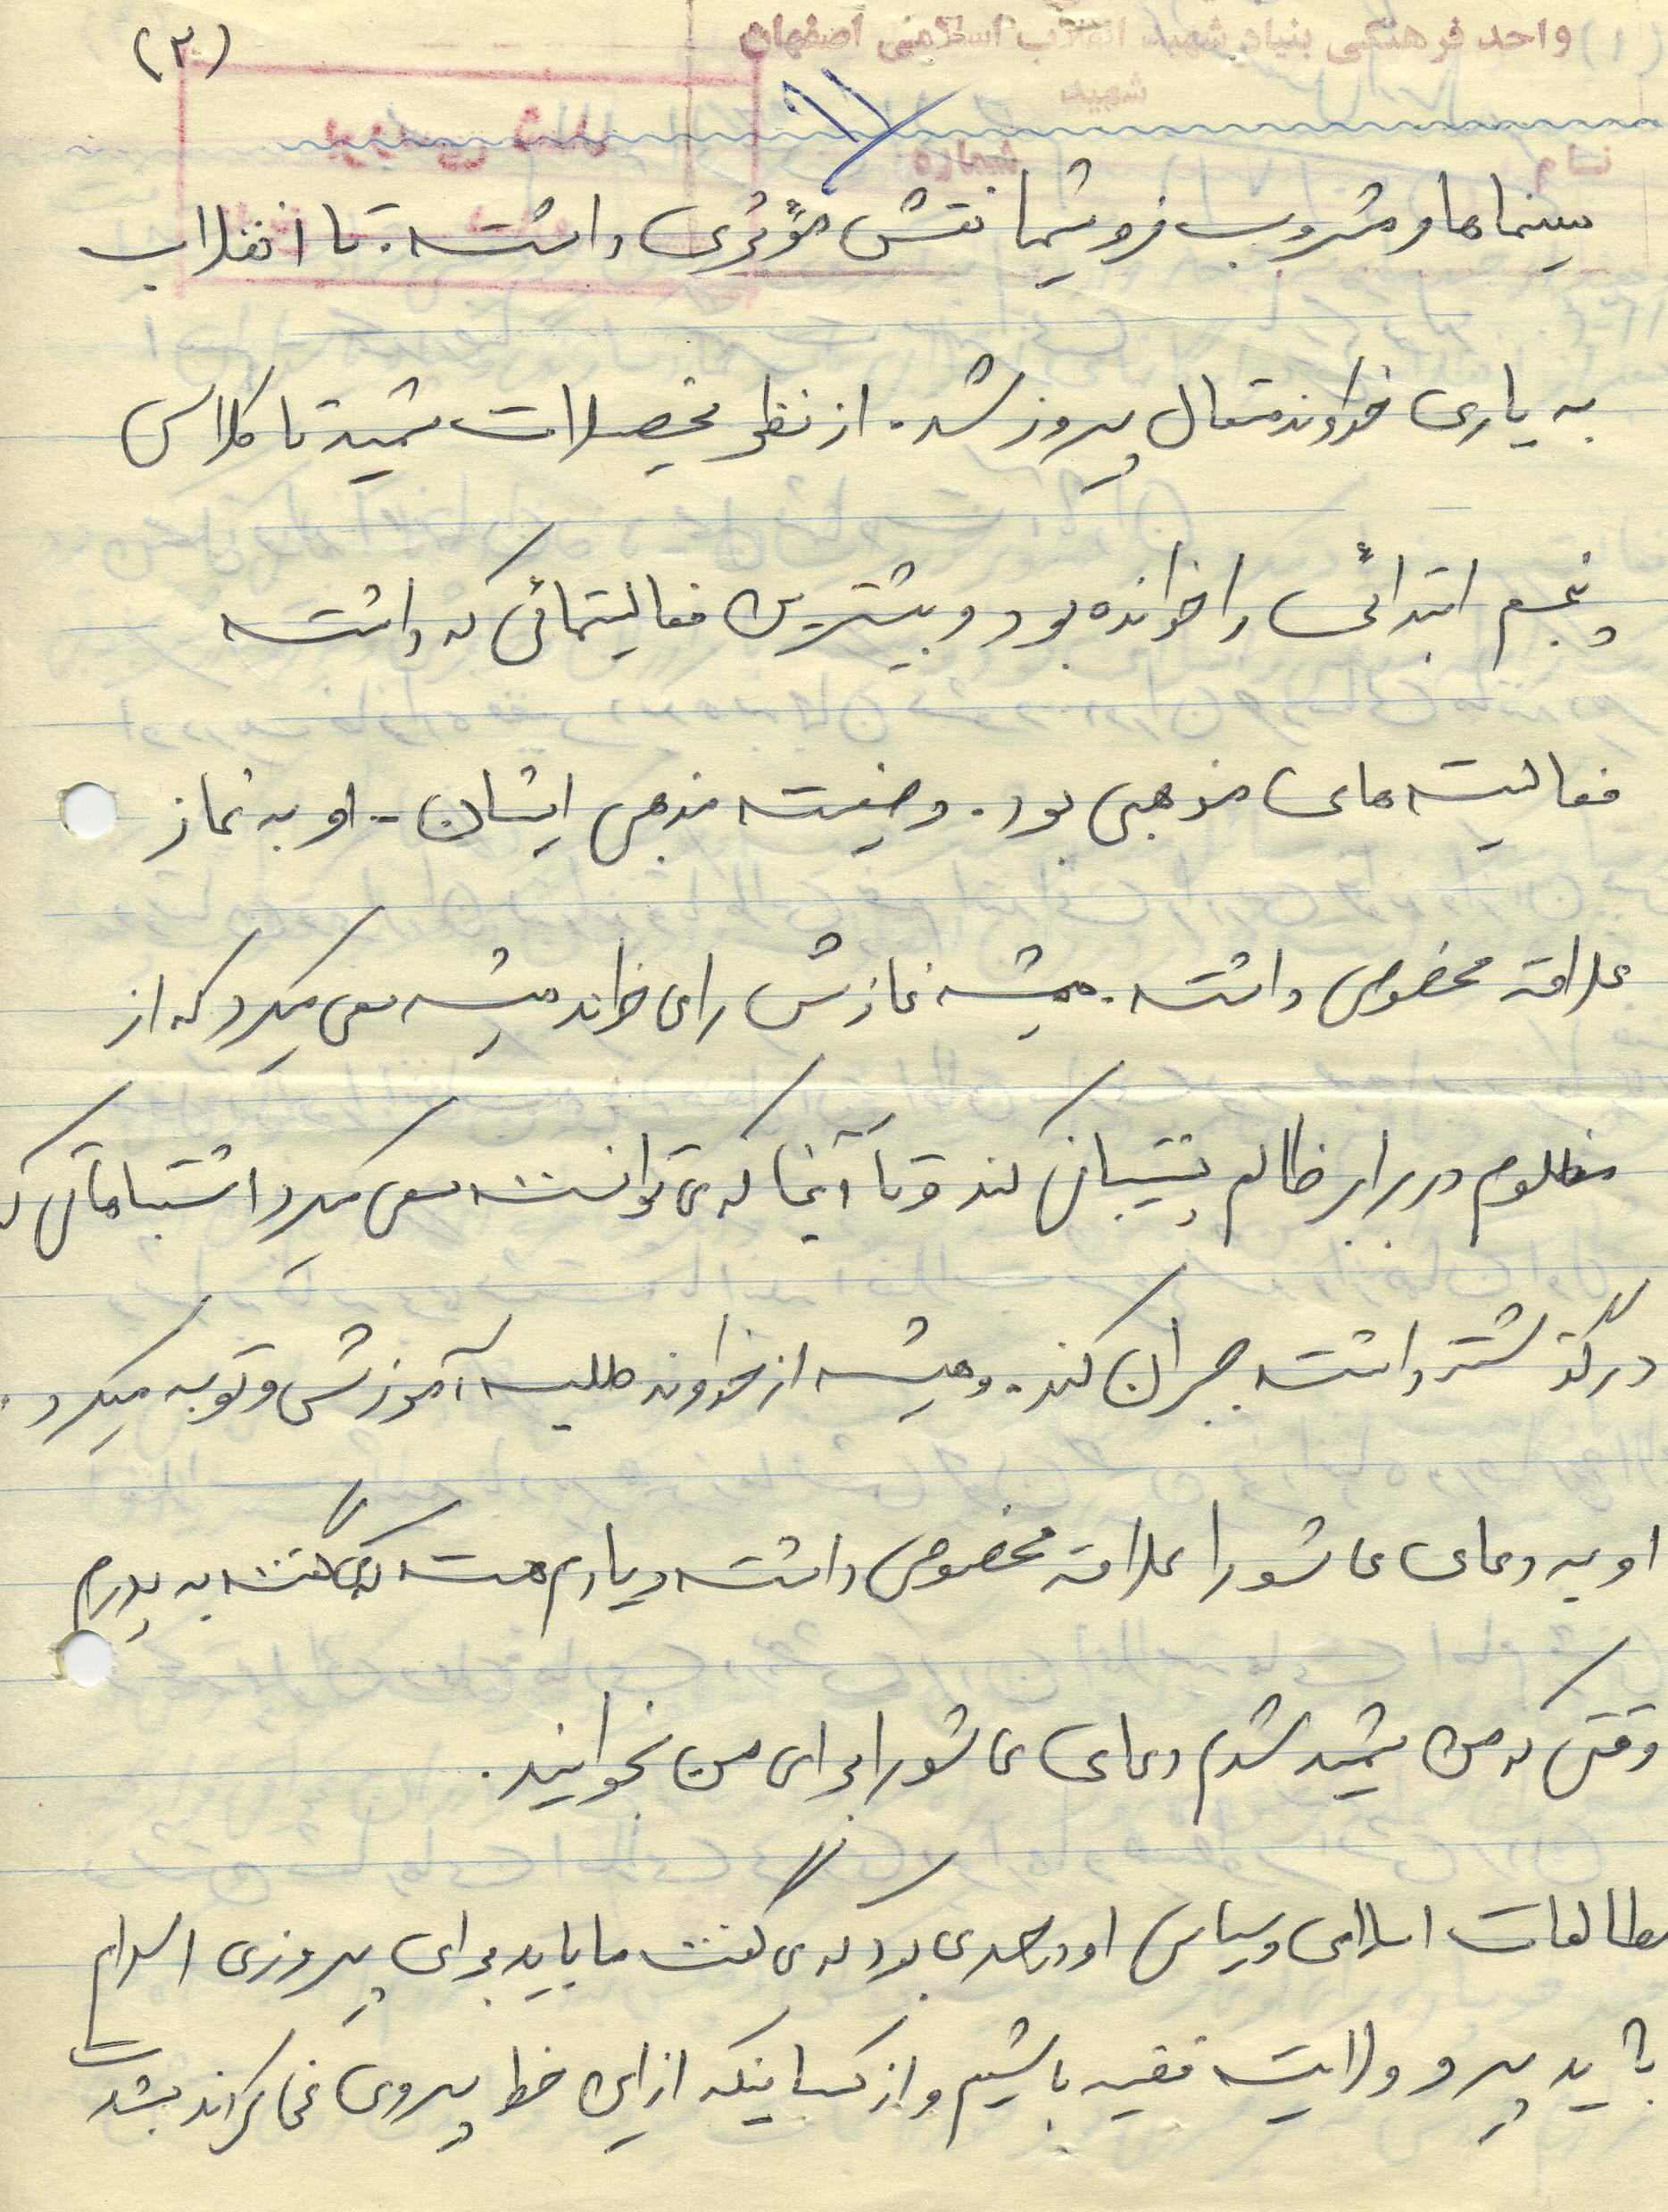 (۲)
واحد فرهنگی بنیاد شهید انقلاب اسلامی اصفهان
(۱)
شهید
نام
شماره
سینماها و مشروب فروشیها نقش مؤثری داشت. تا انقلاب
به یاری خداوند متعال پیروز شد. از نظر تحصیلات شهید تا کلاس
پنجم ابتدائی را خوانده بود و بیشترین فعالیتهائی که داشت
فعالیت های مذهبی بود. وضعیت مذهبی ایشان - او به نماز
علاقه مخصوصی داشت. همیشه نمازش را می خواند همیشه سعی میکرد که از
مظلوم در برابر ظالم پشتیبانی کند و تا آنجا که می توانست سعی میکرد اشتباهاتی که
در گذشته داشت جبران کند. و همیشه از خداوند طلب آموزش و توبه میکرد.
او به دعای عاشورا علاقه مخصوصی داشت و یادم هست که می گفت به پدرم
وقتی که من شهید شدم دعای عاشورا برای من بخوانید.
مطالعات اسلامی و سیاسی او در حدی بود که می گفت ما باید برای پیروزی اسلام
باید پیرو ولایت فقیه باشیم و از کسانیکه از این خط پیروی نمی کنند بشدت